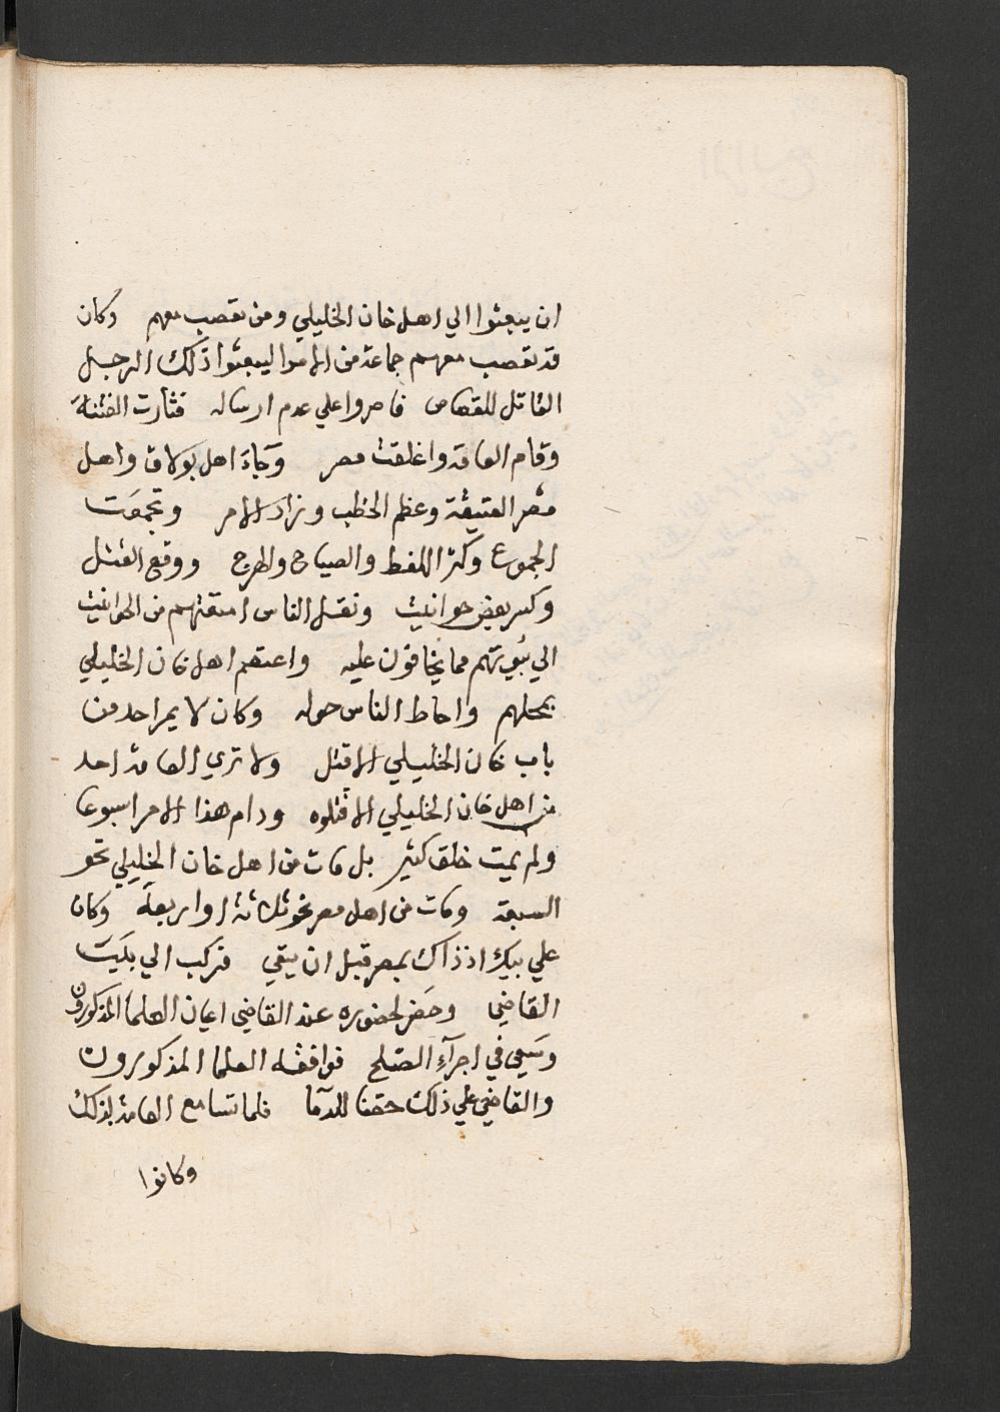 ان يبعثوا الي اهل خان الخليلي ومن تعصب معهم وكان
قد تعصب معهم جماعة من الامرا ليبعثوا ذلك الرجل
القاتل للقصاص فاصروا علي عدم ارساله فثارت الفتنة
وقام العامة واغلقت مصر وجاءَ اهل بولاق واهل
مصر العتيقة وعظم الخطب وزاد الامر وتجمعَت
الجموع وكثر اللغط والصياح والهرج ووقع القتل
وكسر بعض حوانيت ونقل الناس امتعتهم من الحوانيت
الي بُيوتهم مما يخافون عليه واعتصم اهل خان الخليلي
بمحلهم واحاط الناس حوله وكان لا يمر احد من
باب خان الخليلي الا قتل ولا تري العامة احد
من اهل خان الخليلي الا قتلوه ودام هذا الامر اسبوعا
ولم يمت خلق كثير بل مات من اهل خان الخليلي نحو
السبعة ومات من اهل مصر نحو ثلاثة او اربعة وكان
علي بيك اذ ذاك بمصر قبل ان ينفي فركب الي بَيت
القاضي وحضر لحضوره عند القاضي اعيان العلما المذكورون
وسَعي في اجرآءِ الصّلح فوافقه العلما المذكورون
والقاضي علي ذلك حقنا للدمآ فلما تسامع العامة بذلك
وكانوا